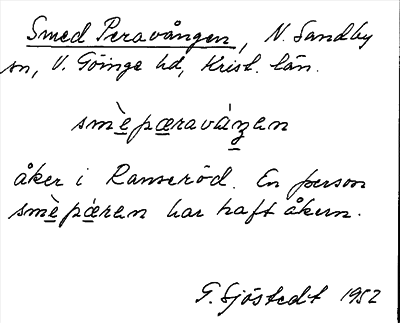 Smed Peravången, N. Sandby
sn, V. Göinge hd, Krist. län.
smèpæraváŋen
åker i Ranseröd. En person
smèpæ̀ren har haft åkern.
G. Sjöstedt 1952